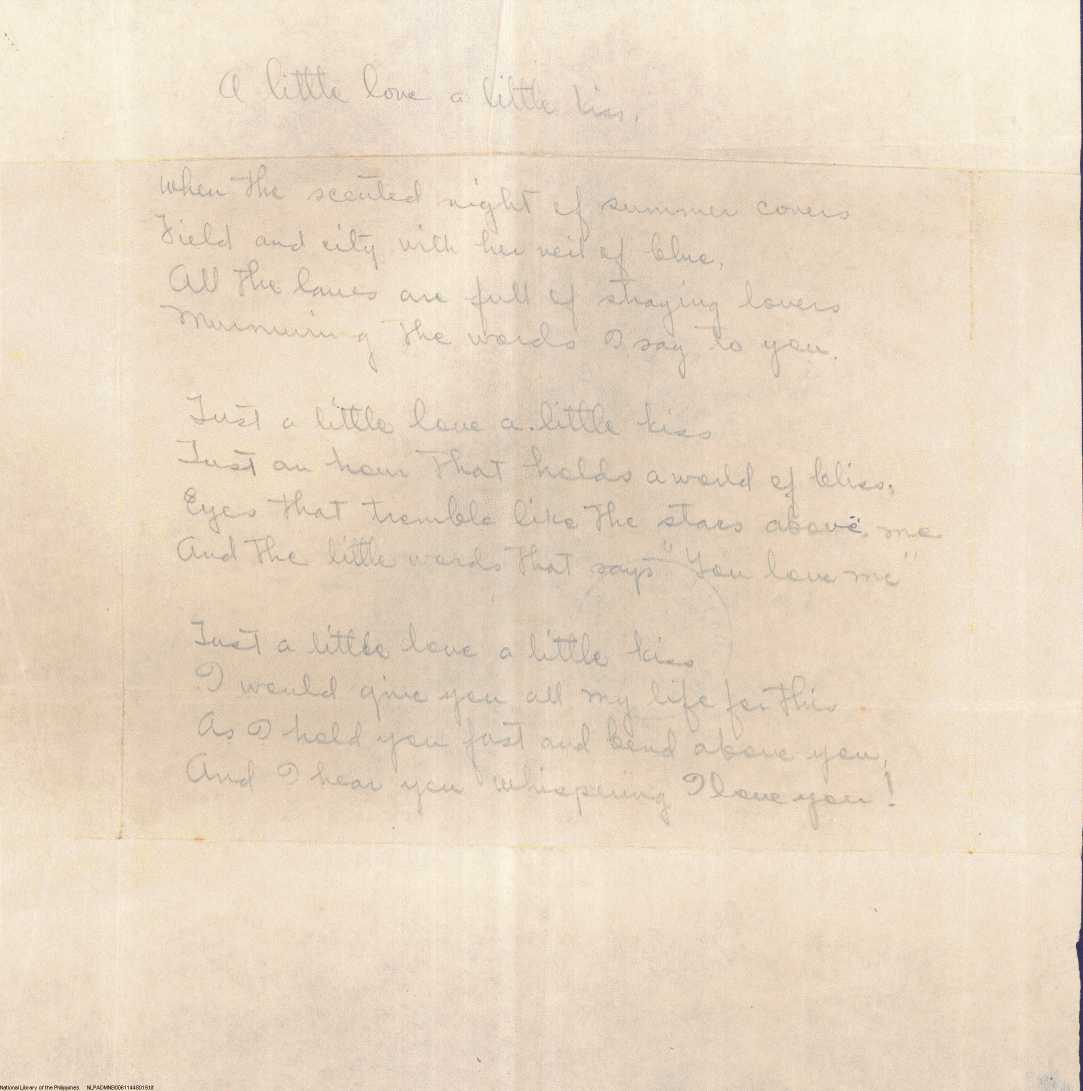 A little love a little kiss.
When the scented night of summer covers
Field and city with her veil of blue,
All the lanes are full of straying lovers
Murmuring the words I say to you.
Just a little love a little kiss
Just an hour that holds a world of bliss,
Eyes that tremble like the stars above me
And the little words that says "You love me"
Just a little love a little kiss
I would give you all my life for this
As I hold you fast and bend above you,
And I hear you whispering I love you!
National Library of the Philippines